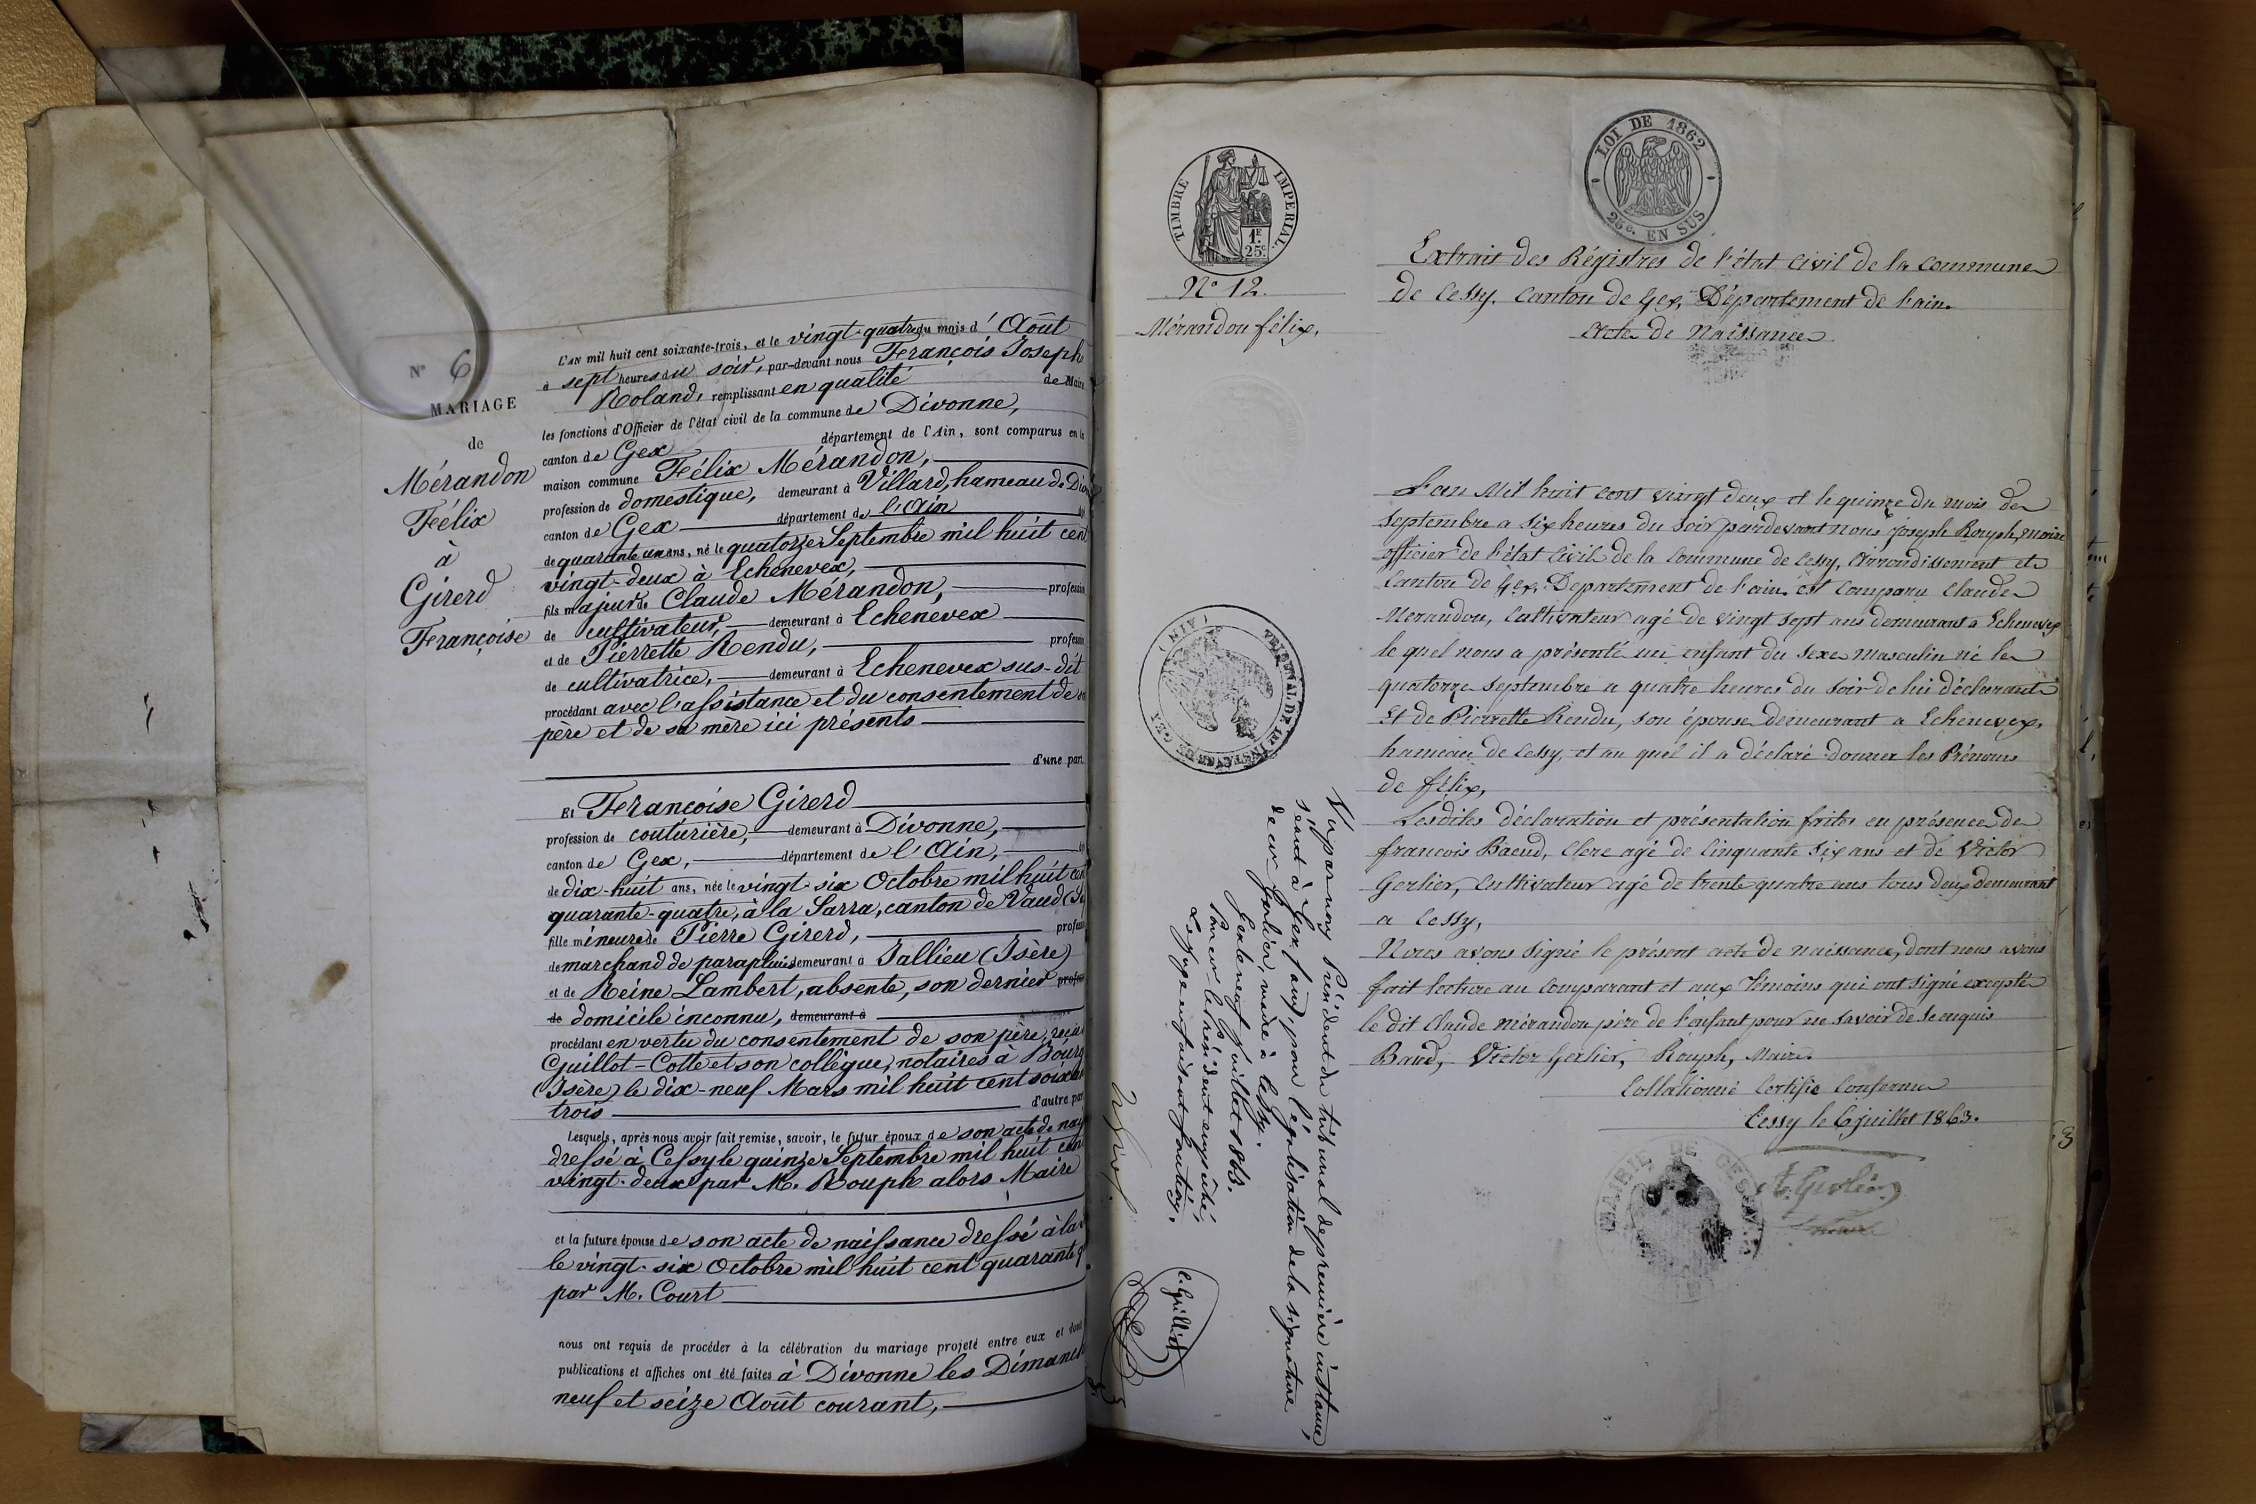 N° 6
MARIAGE
de
Mérandon
Félix
à
Girerd
Françoise
L'AN mil huit cent soixante-trois, et le vingt-quatre du mois d'Août
à sept heures du soir, par-devant nous François Joseph
Roland, remplissant en qualité de Maire
les fonctions d'Officier de l'état civil de la commune de Divonne,
canton de Gex département de l'Ain, sont comparus en la
maison commune Félix Mérandon,
profession de domestique, demeurant à Villard, hameau de
canton de Gex département de l'Ain
de quarante un ans, né le quatorze Septembre mil huit cent
vingt-deux à Echenevex,
fils majeur de Claude Mérandon, profession
de cultivateur, demeurant à Echenevex
et de Pierrette Rendu, profession
de cultivatrice, demeurant à Echenevex sus-dit
procédant avec l'assistance et du consentement de
père et de sa mère ici présents
d'une part
Et Françoise Girerd
profession de couturière, demeurant à Divonne,
canton de Gex, département de l'Ain,
de dix-huit ans, née le vingt-six Octobre mil huit cent
quarante-quatre, à la Sarra, canton de Vaud
fille mineure de Pierre Girerd,
de marchand de parapluies demeurant à Jallieu (Isère)
et de Reine Lambert, absente, son dernier
de domicile inconnu, demeurant à
procédant en vertu du consentement de son père, reçu
Guillot-Cotte et son collègue, notaires à
(Isère) le dix-neuf Mars mil huit cent
trois d'autre part
Lesquels, après nous avoir fait remise, savoir, le futur époux de son acte de
dressé à Cessy le quinze Septembre mil huit cent
vingt-deux par M. Rouph alors Maire
et la future épouse de son acte de naissance dressé à la
le vingt-six Octobre mil huit cent quarante
par M. Court
nous ont requis de procéder à la célébration du mariage projeté entre eux et dont
publications et affiches ont été faites à Divonne les
neuf et seize Août courant,
TIMBRE IMPERIAL
1F 25c
LOI DE 1862
25c. EN SUS
N° 12.
Mérandon félix,
Extrait des Régistres de l'état civil de la commune
de Cessy, Canton de Gex, Département de l'ain.
Acte de Naissance
L'an Mil huit cent vingt deux et le quinze du mois de
Septembre a six heures du Soir pardevant nous joseph Rouph, maire
officier de l'état civil de la commune de Cessy, Arrondissement et
Canton de Gex, Département de l'ain, est comparu Claude
Merandon, Cultivateur agé de vingt sept ans demeurant a Echenevex
le quel nous a présenté un enfant du sexe masculin né le
quatorze septembre a quatre heures du soir de lui déclarant
Et de Pierrette Rendu, son épouse demeurant a Echenevex,
hameau de Cessy, et au quel il a déclaré donner les Prénoms
de félix,
Lesdites déclaration et présentation faites en présence de
francois Baeud, Clerc agé de Cinquante Six ans et de Victor
Gerlier, Cultivateur agé de trente quatre ans tous deux demeurant
a Cessy,
Nous avons signé le présent acte de naissance, dont nous avons
fait lecture au comparant et aux Témoins qui ont signé excepté
le dit Claude mérandon père de l'enfant pour ne savoir de ce enquis
Baud, Victor Gerlier, Rouph, Maire.
Collationné Certifié Conforme
Cessy le 6 juillet 1863.
MAIRIE DE CESSY
TRIBUNAL DE 1re INSTANCE DE GEX
(AIN)
Vu par nous Président du tribunal de première instance,
séant à Gex (ain) pour l'égalisation de la signature
de cer Gerlier, maire à Cessy.
Gex le neuf Juillet 1863.
Pour le Président empêché,
Le Juge en faisant fonction.